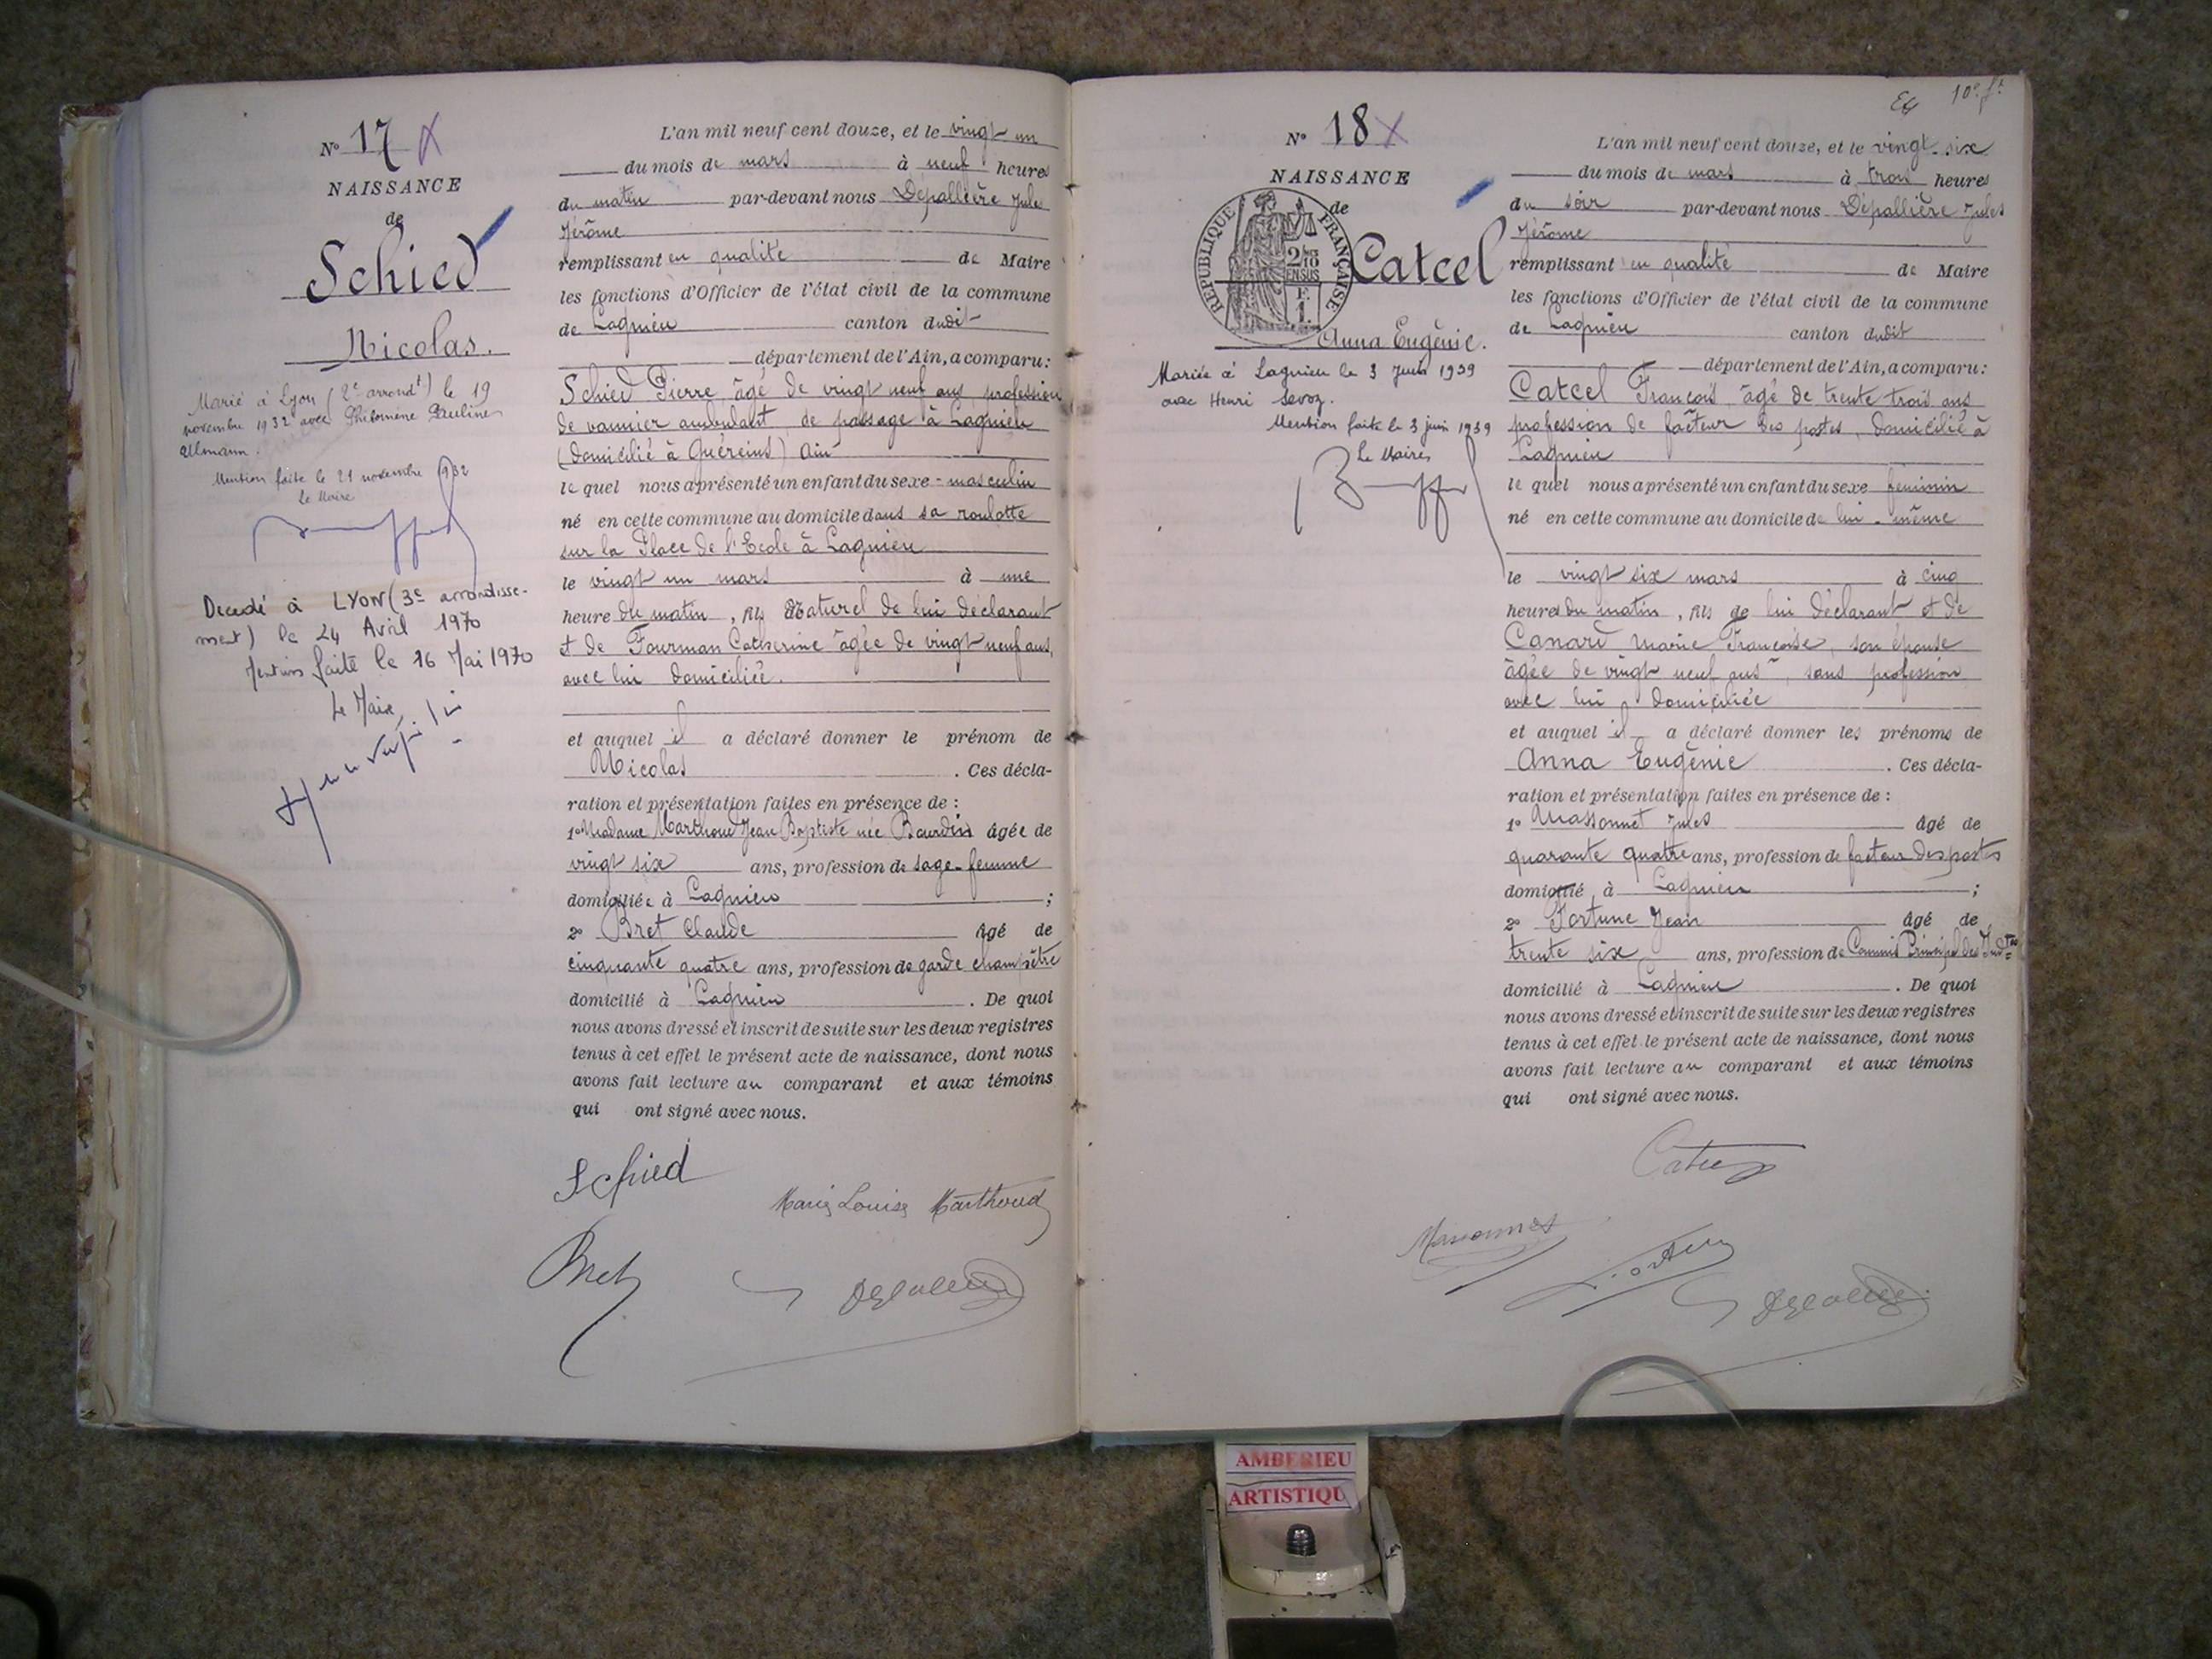 N° 17 X
NAISSANCE
de
Schied
Nicolas.
Marié à Lyon (2e arrondt) le 19
novembre 1932 avec Philomène Pauline
Allmann.
Mention faite le 21 novembre 1932
Le Maire
Decedé à LYON (3e arrondisse-
ment) le 24 Avril 1970
Mention faite le 16 Mai 1970
Le Maire,
L'an mil neuf cent douze, et le vingt un
du mois de mars à neuf heures
du matin par-devant nous Dépallière Jules
Jérôme
remplissant en qualité de Maire
les fonctions d'Officier de l'état civil de la commune
de Lagnieu canton dudit
département de l'Ain, a comparu:
Schied Pierre âgé de vingt neuf ans profession
de vannier ambulant, de passage à Lagnieu
(domicilié à Guéreins) Ain
le quel nous a présenté un enfant du sexe masculin
né en cette commune au domicile dans sa roulotte
sur la Place de l'Ecole à Lagnieu
le vingt un mars à une
heure du matin, fils naturel de lui déclarant
et de Fourman Catherine âgée de vingt neuf ans,
avec lui domiciliée.
et auquel il a déclaré donner le prénom de
Nicolas . Ces décla-
ration et présentation faites en présence de :
1° Madame Marthoud Jean Baptiste née Bourdin âgée de
vingt six ans, profession de sage-femme
domiciliée à Lagnieu ;
2° Bret Claude âgé de
cinquante quatre ans, profession de garde champêtre
domicilié à Lagnieu . De quoi
nous avons dressé et inscrit de suite sur les deux registres
tenus à cet effet le présent acte de naissance, dont nous
avons fait lecture au comparant et aux témoins
qui ont signé avec nous.
Schied
Marie Louise Marthoud
Bret
Depallière
10e ft
N° 18 X
NAISSANCE
de
REPUBLIQUE FRANÇAISE
2/10
EN SUS
F.
1.
Catcel
Anna Eugénie.
Mariée à Lagnieu le 3 Juin 1939
avec Henri Savoz.
Mention faite le 3 juin 1939
Le Maire,
L'an mil neuf cent douze, et le vingt-six
du mois de mars à trois heures
du soir par-devant nous Dépallière Jules
Jérôme
remplissant en qualité de Maire
les fonctions d'Officier de l'état civil de la commune
de Lagnieu canton dudit
département de l'Ain, a comparu:
Catcel François âgé de trente trois ans
profession de facteur des postes, domicilié à
Lagnieu
le quel nous a présenté un enfant du sexe féminin
né en cette commune au domicile de lui-même
le vingt six mars à cinq
heures du matin, fils de lui déclarant et de
Canard Marie Françoise, son épouse
âgée de vingt neuf ans, sans profession
avec lui domiciliée
et auquel il a déclaré donner les prénoms de
Anna Eugénie . Ces décla-
ration et présentation faites en présence de :
1° Massonnet Jules âgé de
quarante quatre ans, profession de facteur des postes
domicilié à Lagnieu ;
2° Fortune Jean âgé de
trente six ans, profession de Commis Principal des Indtes
domicilié à Lagnieu . De quoi
nous avons dressé et inscrit de suite sur les deux registres
tenus à cet effet le présent acte de naissance, dont nous
avons fait lecture au comparant et aux témoins
qui ont signé avec nous.
Catcel
Massonnet
Fortune
Depallière
AMBERIEU
ARTISTIQU